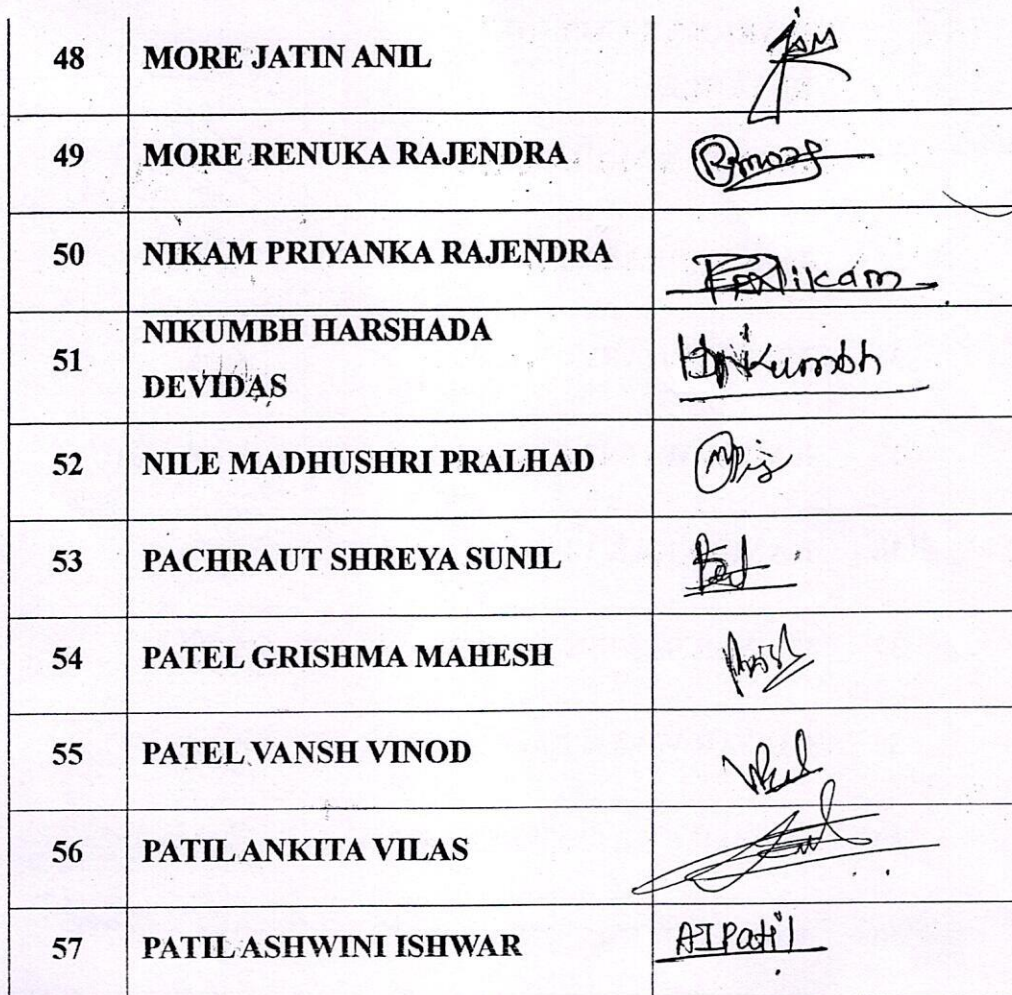 48 MORE JATIN ANIL JAM
49 MORE RENUKA RAJENDRA Rmore
50 NIKAM PRIYANKA RAJENDRA PRNikam
51 NIKUMBH HARSHADA
DEVIDAS HDNikumbh
52 NILE MADHUSHRI PRALHAD
53 PACHRAUT SHREYA SUNIL
54 PATEL GRISHMA MAHESH
55 PATEL VANSH VINOD
56 PATIL ANKITA VILAS
57 PATIL ASHWINI ISHWAR AIPatil